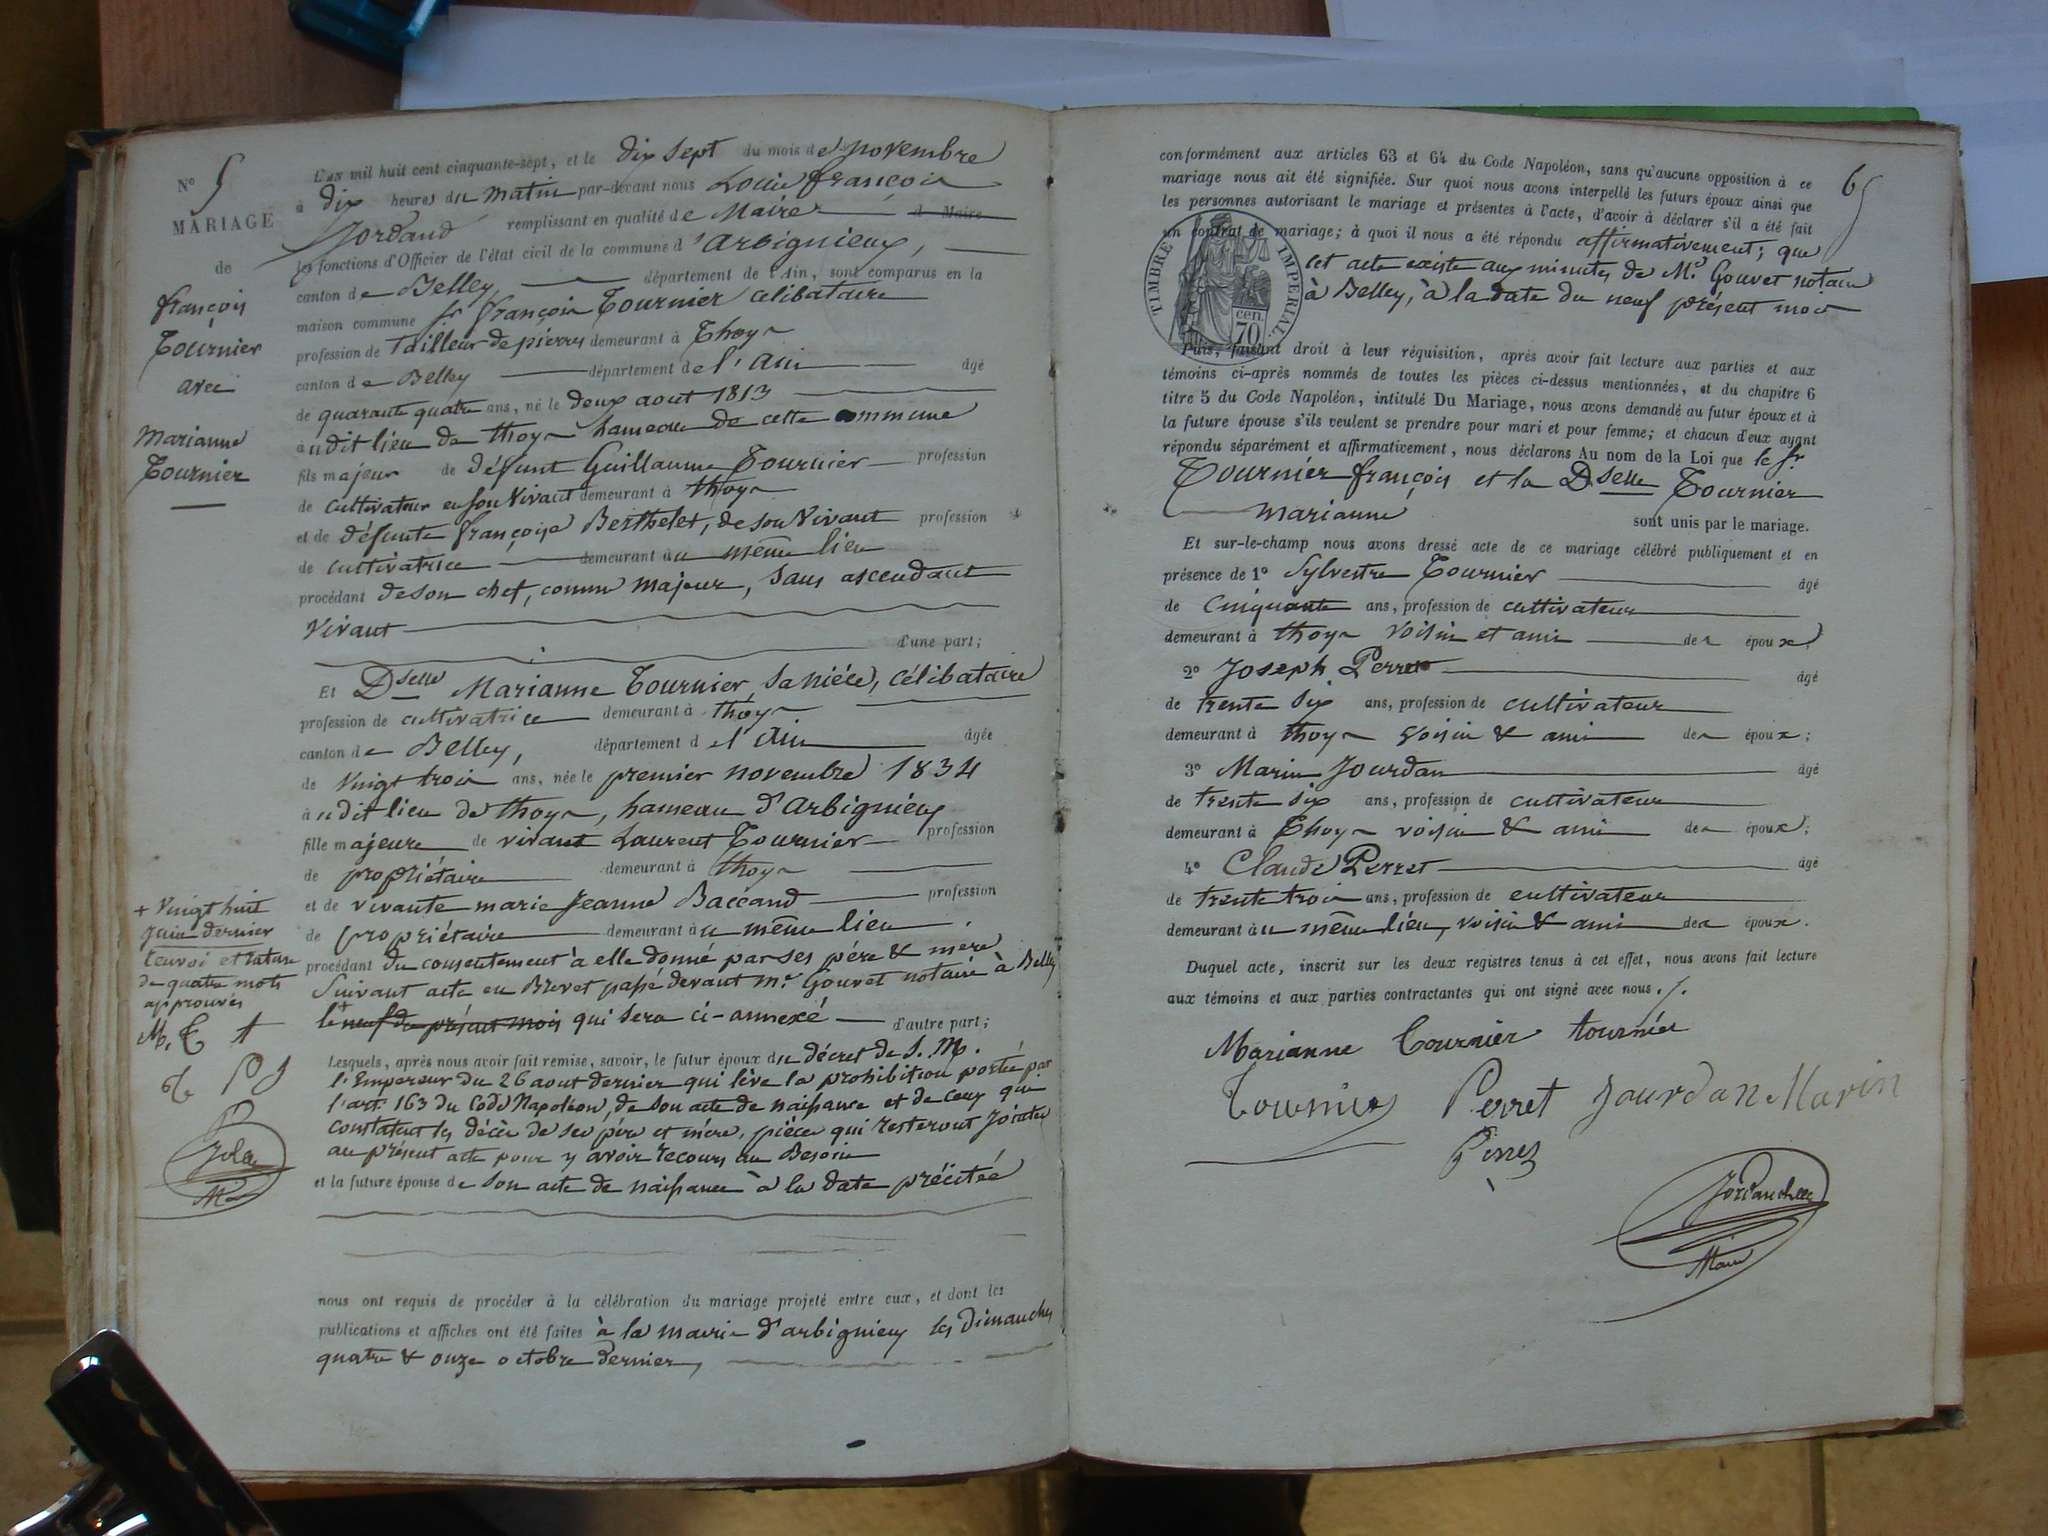 N° 5
MARIAGE
de
françois
Tournier
avec
Marianne
Tournier
L'an mil huit cent cinquante-sept, et le dix sept du mois de novembre
à dix heures du matin par-devant nous Louis françois
Jordand remplissant en qualité de Maire
les fonctions d'Officier de l'état civil de la commune d'Arbignieux,
canton de Belley, département de l'Ain, sont comparus en la
maison commune sr françois Tournier célibataire
profession de tailleur de pierres demeurant à Thoys
canton de Belley département de l'Ain âgé
de quarante quatre ans, né le deux aout 1813
au dit lieu de thoys hameau de cette commune
fils majeur de défunt Guillaume Tournier profession
de cultivateur en son vivant demeurant à thoys
et de défunte françoise Berthelet, de son vivant profession
de cultivatrice demeurant au même lieu
procédant de son chef, comme majeur, sans ascendant
vivant
d'une part;
Et Dselle Marianne Tournier, sa nièce, célibataire
profession de cultivatrice demeurant à thoys
canton de Belley, département de l'Ain âgée
de vingt trois ans, née le premier novembre 1834
au dit lieu de thoys, hameau d'Arbignieux
fille majeure de vivant Laurent Tournier profession
de propriétaire demeurant à thoys
et de vivante marie Jeanne Baccand profession
de propriétaire demeurant au même lieu
procédant du consentement à elle donné par ses père & mère
Suivant acte en Brevet passé devant Mr Gouvet notaire à Belley
le + neuf du présent mois qui sera ci-annexé d'autre part;
+ vingt huit
juin dernier
renvoi et rature
de quatre mots
approuvés
M. T
Lesquels, après nous avoir fait remise, savoir, le futur époux du décret de S. M.
l'Empereur du 26 aout dernier qui lève la prohibition portée par
l'art. 163 du Code Napoléon, de son acte de naissance et de ceux qui
constatent les décès de ses père et mère, pièces qui resteront jointes
au présent acte pour y avoir recours au Besoin
et la future épouse de son acte de naissance à la date précitée
nous ont requis de procéder à la célébration du mariage projeté entre eux, et dont les
publications et affiches ont été faites à la mairie d'arbignieux les dimanches
quatre & onze octobre dernier,
65
conformément aux articles 63 et 64 du Code Napoléon, sans qu'aucune opposition à ce
mariage nous ait été signifiée. Sur quoi nous avons interpellé les futurs époux ainsi que
les personnes autorisant le mariage et présentes à l'acte, d'avoir à déclarer s'il a été fait
un contrat de mariage; à quoi il nous a été répondu affirmativement; que
cet acte existe aux minutes de Mr Gouvet notaire
à Belley, à la date du neuf présent mois
TIMBRE IMPERIAL
70 cen.
Puis, faisant droit à leur réquisition, après avoir fait lecture aux parties et aux
témoins ci-après nommés de toutes les pièces ci-dessus mentionnées, et du chapitre 6
titre 5 du Code Napoléon, intitulé Du Mariage, nous avons demandé au futur époux et à
la future épouse s'ils veulent se prendre pour mari et pour femme; et chacun d'eux ayant
répondu séparément et affirmativement, nous déclarons Au nom de la Loi que le sr
Tournier françois et la Dselle Tournier
Marianne sont unis par le mariage.
Et sur-le-champ nous avons dressé acte de ce mariage célébré publiquement et en
présence de 1° Sylvestre Tournier âgé
de cinquante ans, profession de cultivateur
demeurant à thoys voisin et ami des époux;
2° Joseph Perret âgé
de trente six ans, profession de cultivateur
demeurant à thoys voisin & ami des époux;
3° Marin Jourdan âgé
de trente six ans, profession de cultivateur
demeurant à Thoys voisin & ami des époux;
4° Claude Perret âgé
de trente trois ans, profession de cultivateur
demeurant au même lieu, voisin & ami des époux.
Duquel acte, inscrit sur les deux registres tenus à cet effet, nous avons fait lecture
aux témoins et aux parties contractantes qui ont signé avec nous.
Marianne Tournier tournier
Tournier Perret Jourdan Marin
Perret
Maire